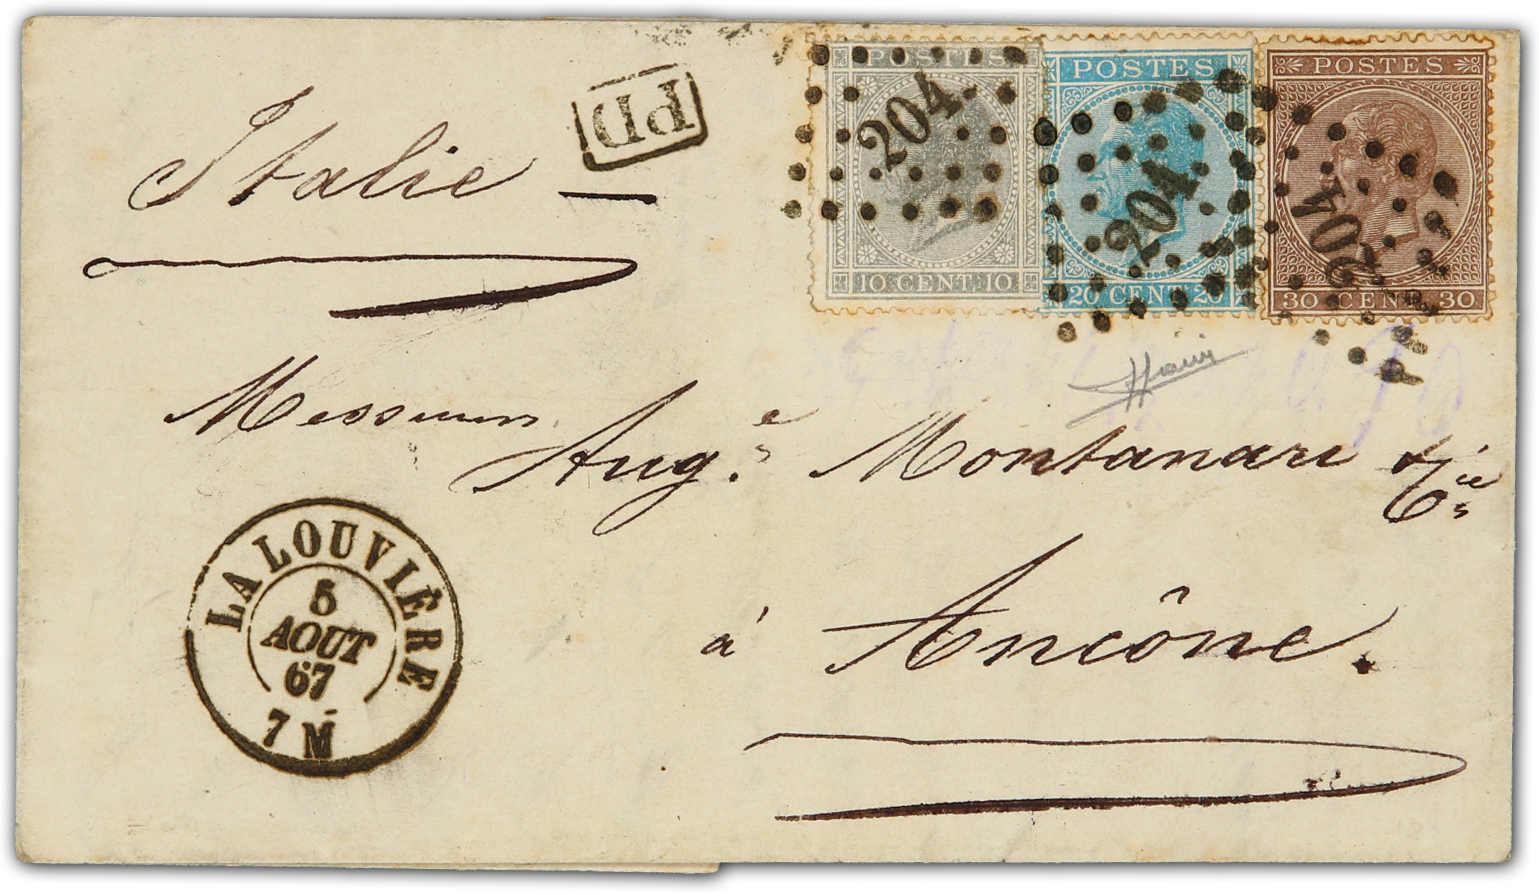 PD
POSTES
10 CENT. 10
204
POSTES
20 CENT 20
204
POSTES
30 CENT. 30
204
Italie
Messieurs
Aug.e Montanari & Cie
à Ancône.
LA LOUVIÈRE
5
AOUT
67
7 M